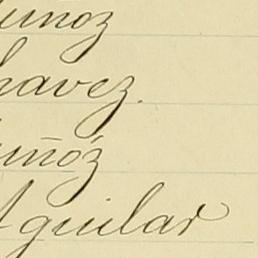 unoz
havez.
uñóz
Aguilar